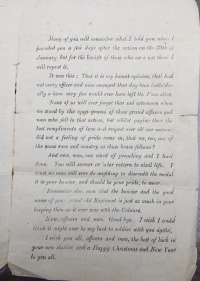 Many of you will remember what I told you when I
paraded you a few days after the action on the 20th of
January, but for the benefit of those who were not there I
will repeat it,
It was this: That it is my honest opinion, that had
not every officer and man excepted that day been individu-
ally a hero, very few would ever have left the alive.
None of us will ever forget that sad afternoon when
we stood by the open graves of those grand officers and
men who fell in that action, but whilst paying them the
last compliments of love and respect over all our sorrow
did not a feeling of pride come in, that we, too, are of
the same race and country as those brave fellows?
And now, men, one word of preaching and I have
done. You will sooner or later return to civil life. I
trust no man will ever do anything to discredit the medal
it is your honour, and should be your pride, to wear.
Remember also men that the honour and the good
name of your grand old Regiment is just as much in your
keeping then as it ever was with the Colours.
Now, officers and men Good-bye. I wish I could
think it might ever be my luck to soldier with you again,
I wish you all, officers and men, the best of luck in
your new station and a Happy Christmas and New Year
to you all.